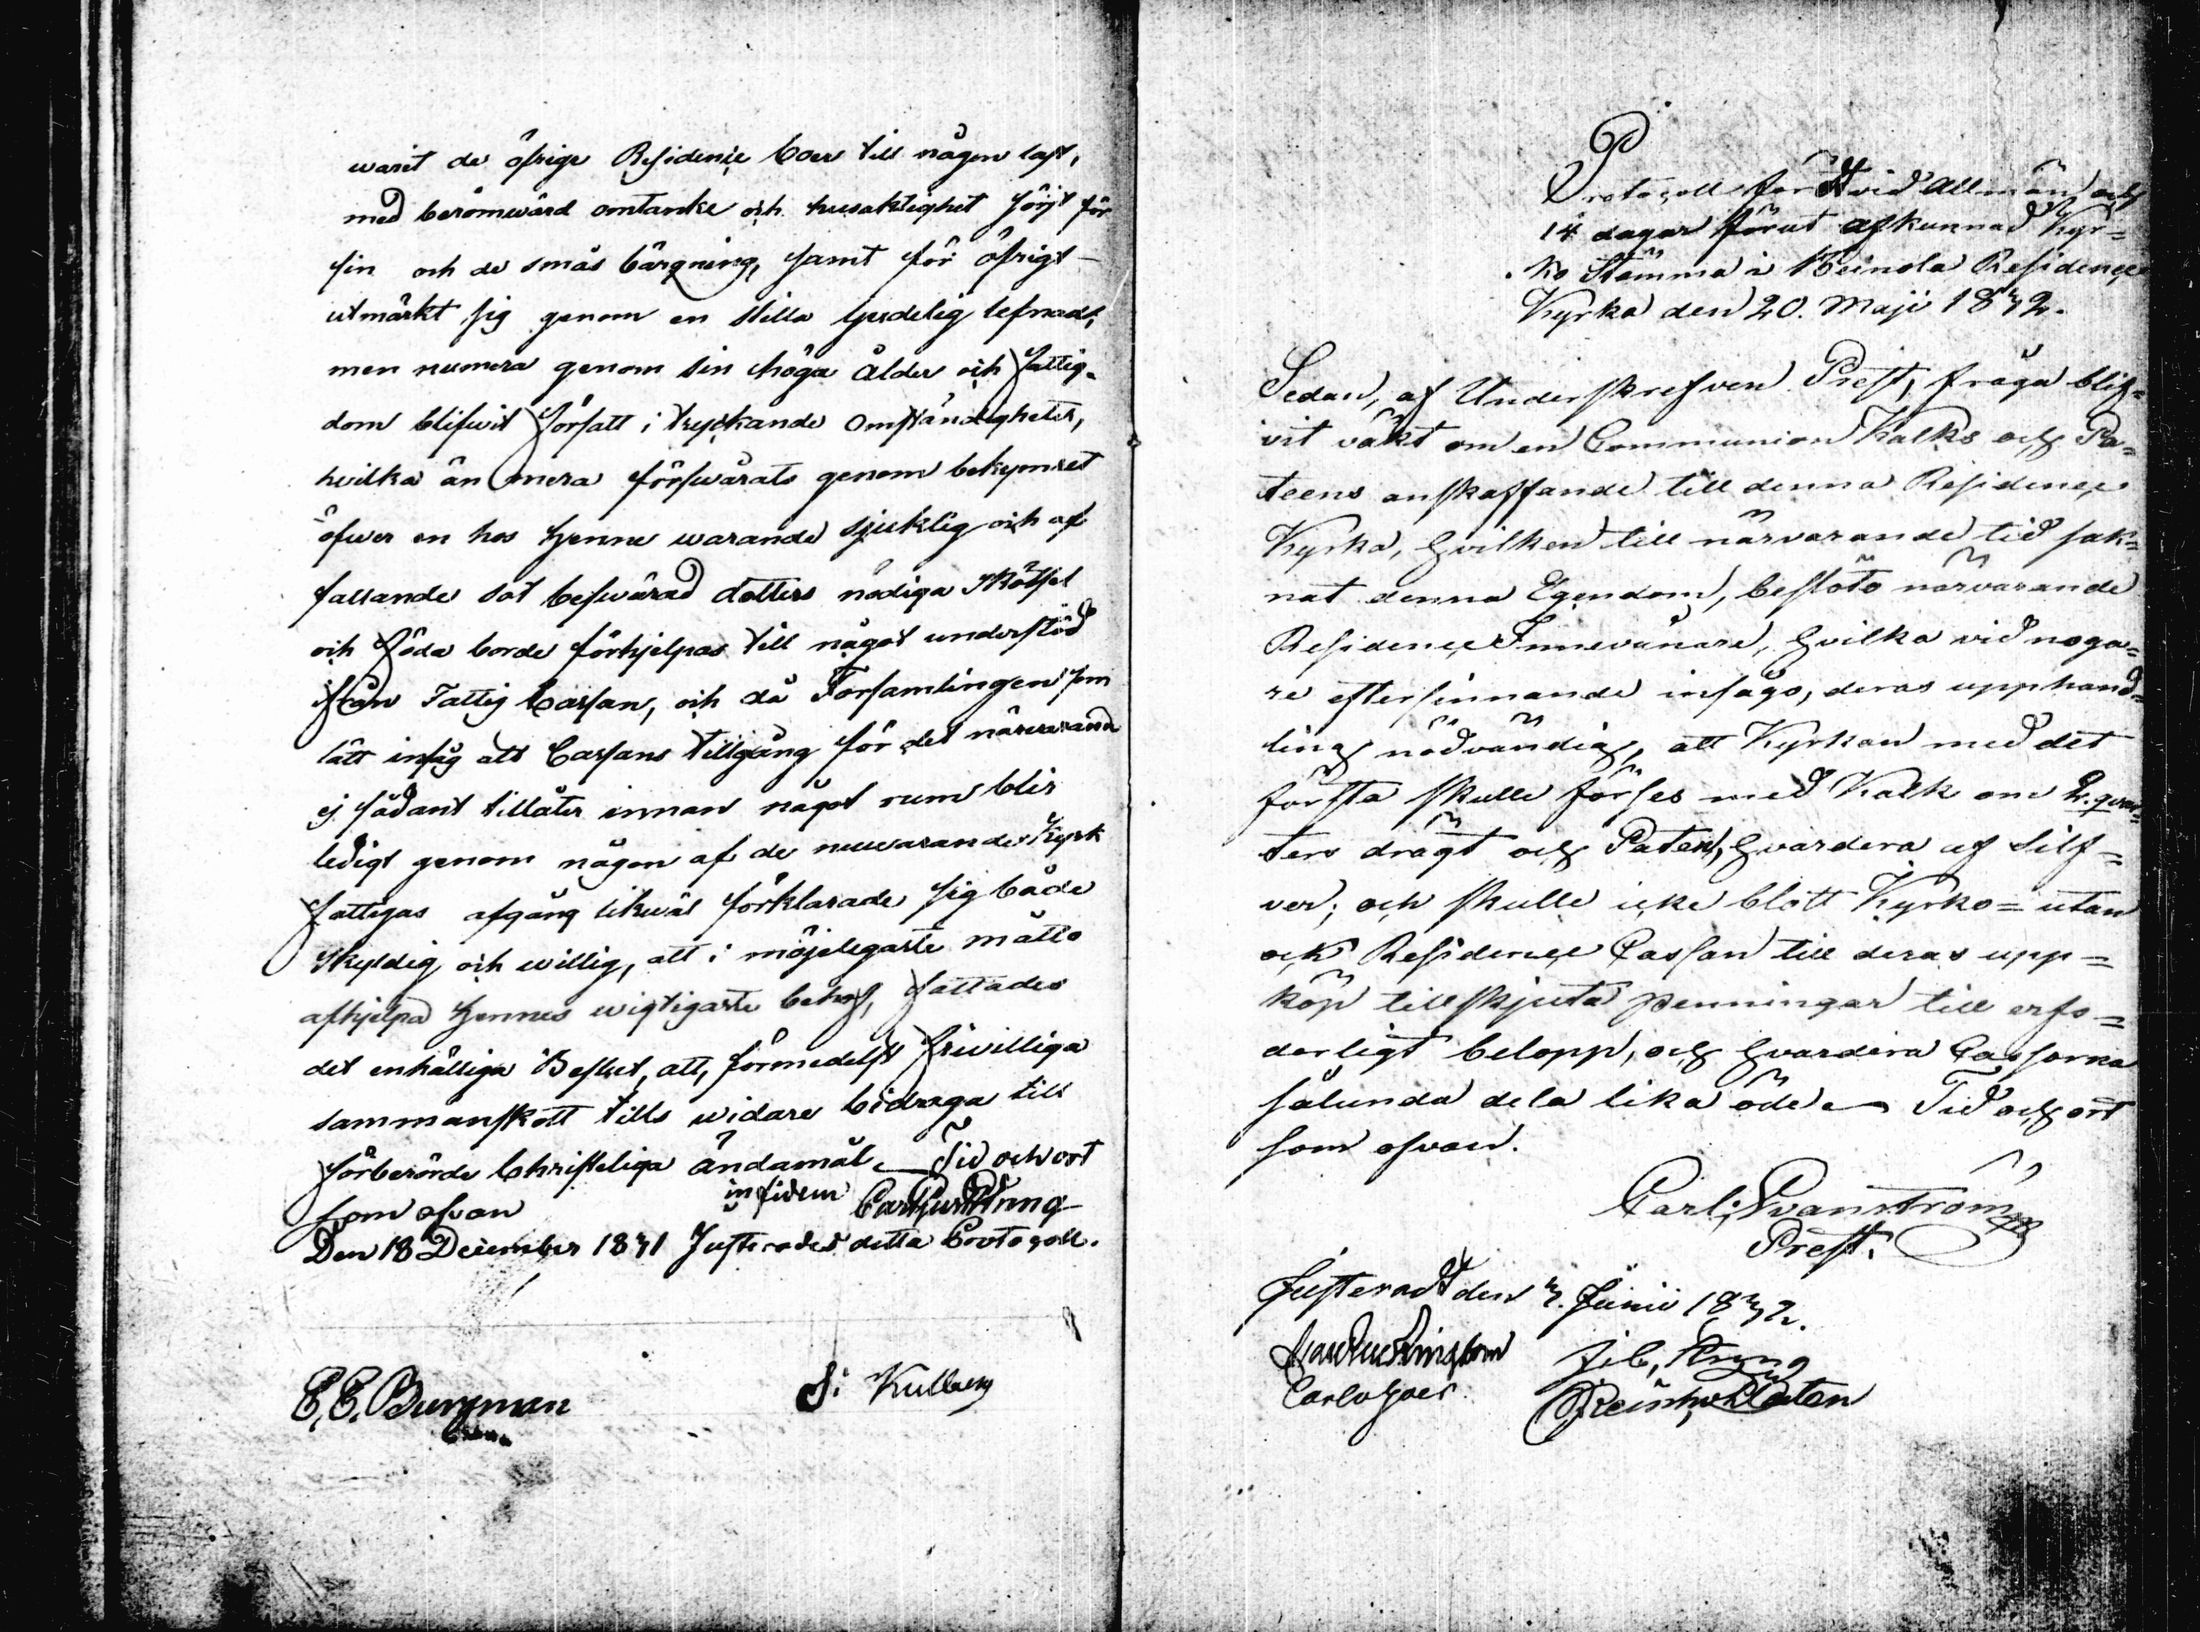 warit de öfrige Residence boer till någon last,
med berömwärd omtanke och husaktighet sörjt för
sin och de smås bärgning, samt för öfrigt
utmärkt sig genom en stilla gudelig lefnad,
men numera genom sin höga ålder och fattig-
dom blifwit försatt i tryckande omständigheter,
hvilka än mera förswårats genom bekymret
öfwer en hos henne warande sjuklig och af
fallande sot beswärad dotters nödiga skötsel
och föda borde förhjelpas till något understöd
ifrån Fattig Cassan, och då Församlingen som
lätt insåg att Cassans tillgång för det närwarande
ej sådant tillåter innan något rum blir
ledigt genom någon af de nuwarande Kyrk
fattigas afgång likwäl förklarade sig både
skyldig och willig, att i möjeligaste måtto
afhjelpa hennes wigtigaste behof, fattades
det enhälliga Beslut, att, förmedelst friwilliga
sammanskott tills widare bidraga till
förberörde Christeliga ändamål. Tid och ort
som ofvan
in fidem
Den 18 December 1831 Justerades detta Protocoll.
E. E. Bergman
Kullberg
Protocoll fördt vid Allmän och
14 dagar förut afkunnad Kyr=
ko Stämma i Heinola Residence
Kyrka den 20. Maji 1832.
Sedan, af Underskrefven Prest, fråga blif=
vit väkt om en Communion Kalks och Pa=
teens anskaffande till denna Residence
Kyrka, hvilken till närvarande tid sak=
nat denna Egendom, beslöto närvarande
Residence Innevånare, hvilka vid noga=
re eftersinnande insågo, deras upphand=
ling nödvändig, att Kyrkan med det
första skulle förses med Kalk om 2. qvar=
ters drägt och Paten, hvardera af Silf=
ver; och skulle icke blott Kyrko= utan
ock Residence Cassan till deras upp=
köp tillskjuta penningar till erfo=
derligt belopp, och hvardera Cassorna
sålunda dela lika öde. Tid och ort
som ofvan.
Carl Svanström
Prest.
Justeradt den 3. Junii 1832.